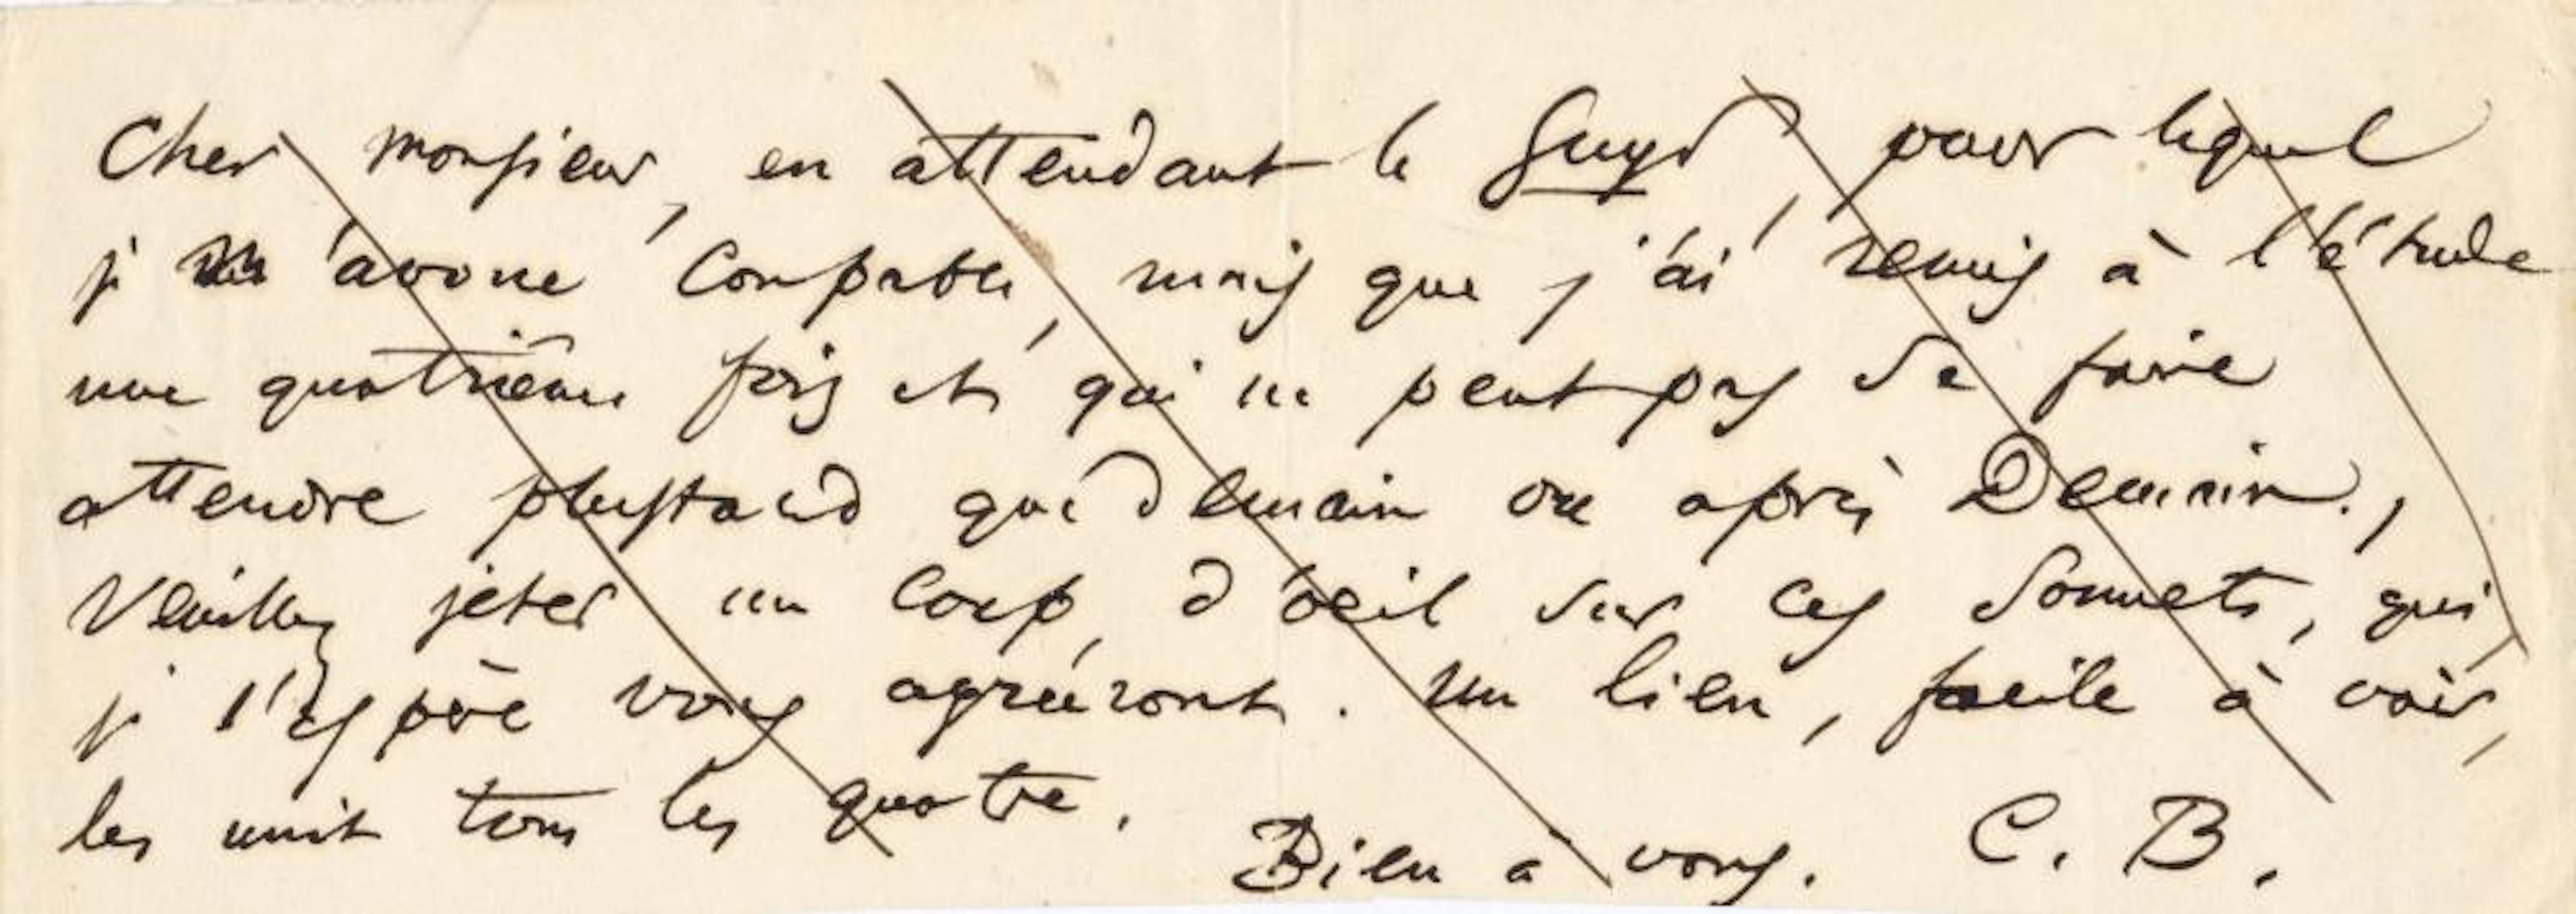 Cher monsieur, en attendant le Guys, pour lequel
je m'avoue coupable, mais que j'ai remis à l'étude
une quatrième fois et qui ne peut pas se faire
attendre plustard que demain ou après Demain.,
Veuillez jeter un coup d'œil sur ces Sonnets, qui,
je l'espère vous agréeront. Un lien, facile à voir,
les unit tous les quatre.
Bien à vous. C. B.